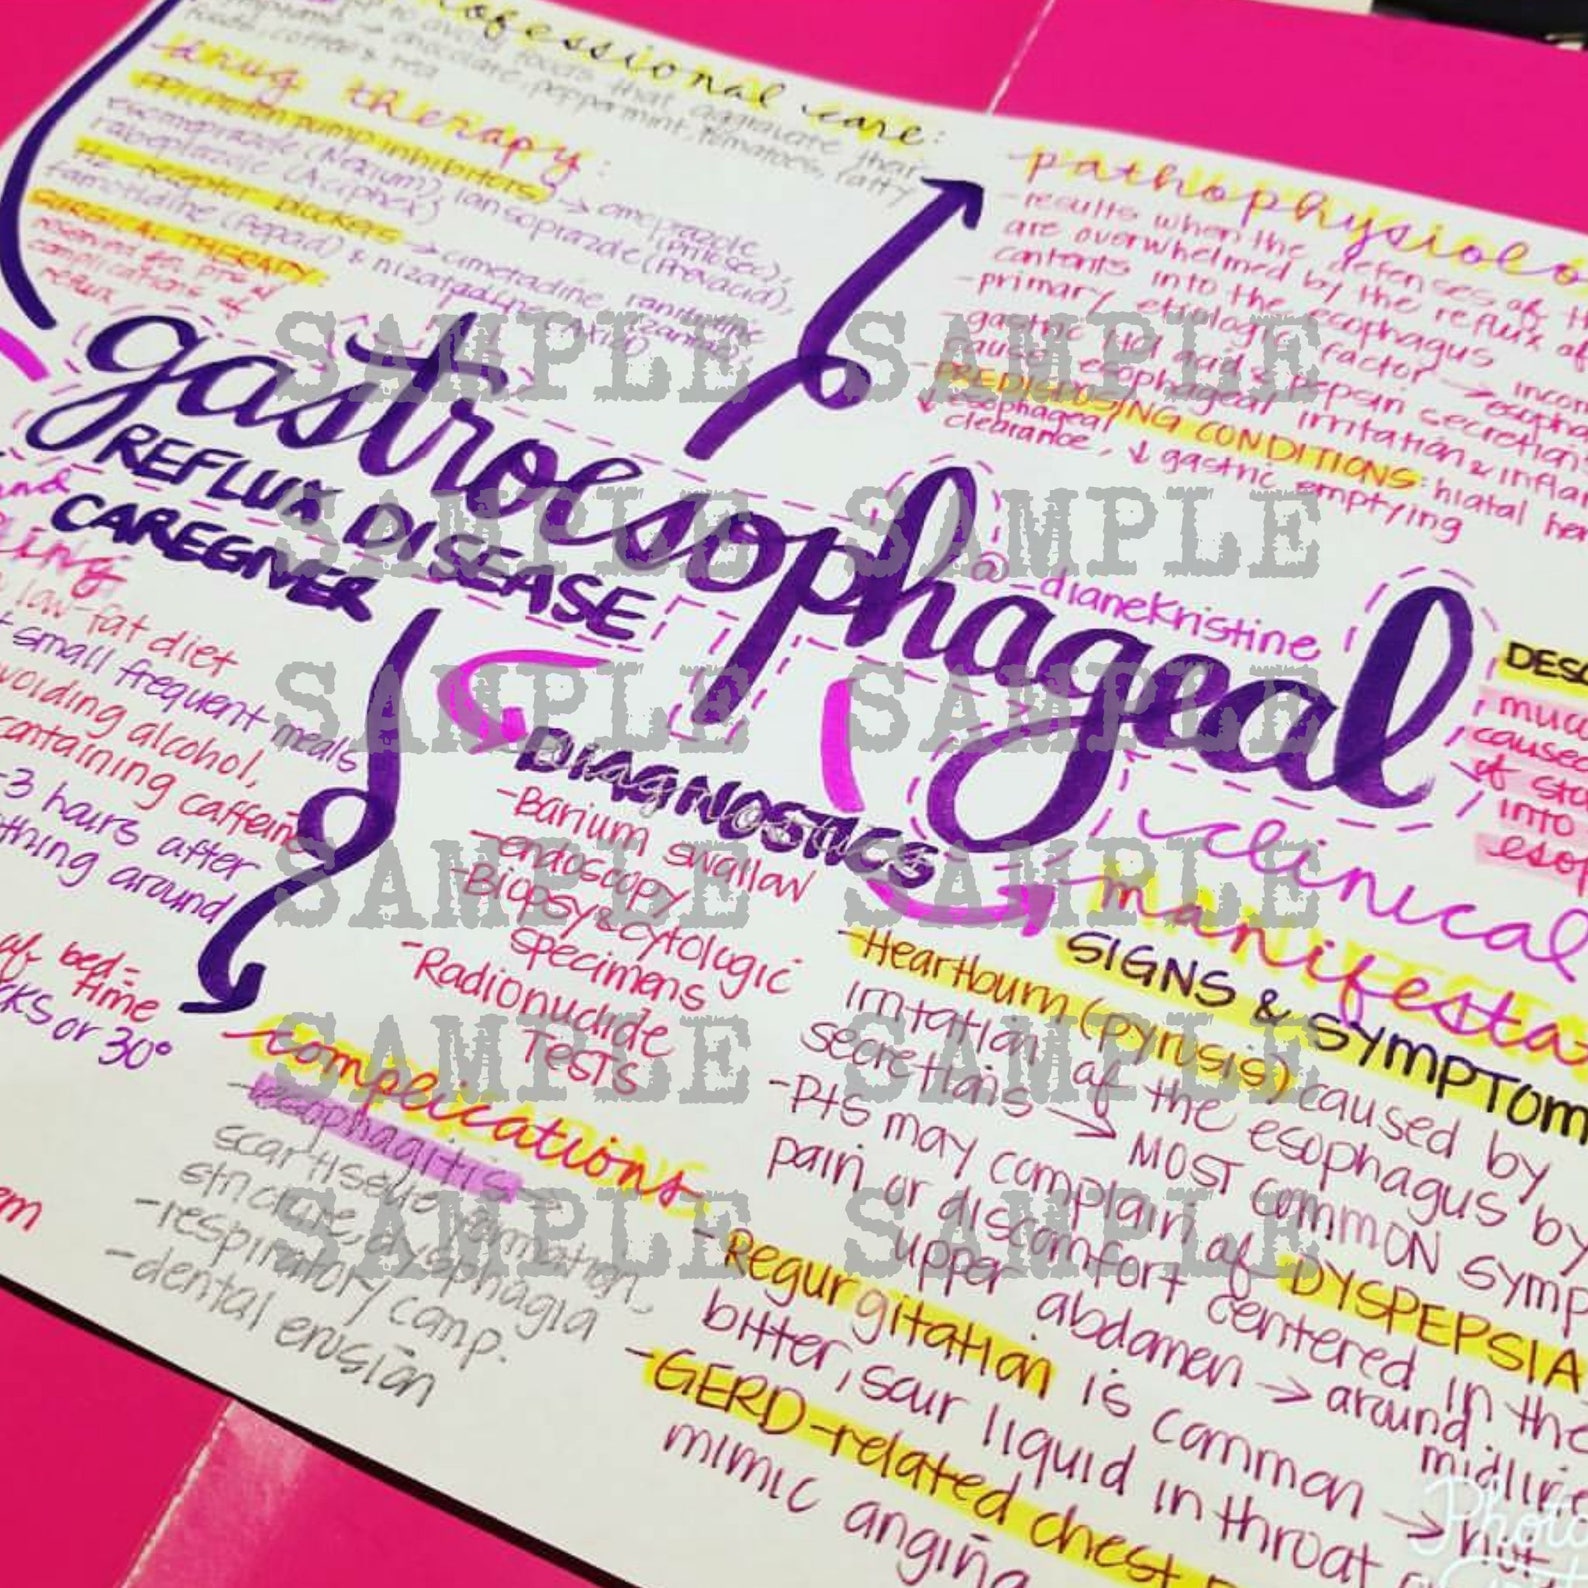 professional care:
to avoid foods that aggravate their
chocolate, peppermint, tomatoes, fatty
foods, coffee & tea
drug therapy:
PPI: proton pump inhibitors → omeprazole (Prilosec),
esomeprazole (Nexium), lansoprazole (Prevacid),
rabeprazole (Aciphex)
H₂ receptor blockers → cimetadine, ranitidine
famotidine (Pepcid) & nizatadine (Axid)
SURGICAL THERAPY:
reserved for pts w/
complications of
reflux
pathophysiolo
-results when the defenses of
are overwhelmed by the reflux of
contents into the esophagus
-primary etiologic factor →
-gastric HCl acid & pepsin secretion
cause esophageal irritation & inflam
-PREDISPOSING CONDITIONS: hiatal her
↓ esophageal
clearance, ↓ gastric emptying
gastroesophageal
REFLUX DISEASE
@_dianekristine
and
CAREGIVER
low-fat diet
small frequent meals
voiding alcohol,
containing caffeine
-3 hours after
thing around
of bed-
time
or 30°
em
DIAGNOSTICS
-Barium swallow
-endoscopy
-Biopsy & cytologic
specimens
-Radionuclide
TESTS
complications
-esophagitis →
scar tissue formation,
stricture, dysphagia
-respiratory comp.
-dental erosion
DESC
muc
caused
of sto
into
esop
clinical
manifesta
SIGNS & SYMPTOM
-Heartburn (pyrosis) caused by
irritation of the esophagus by
secretions → MOST COMMON SYMP
-Pts may complain of DYSPEPSIA
pain or discomfort centered in the
upper abdomen → around
midline
-Regurgitation is common → hot,
bitter, sour liquid in throat
-GERD-related chest
mimic angina
SAMPLE SAMPLE
SAMPLE SAMPLE
SAMPLE SAMPLE
SAMPLE SAMPLE
SAMPLE SAMPLE
SAMPLE SAMPLE